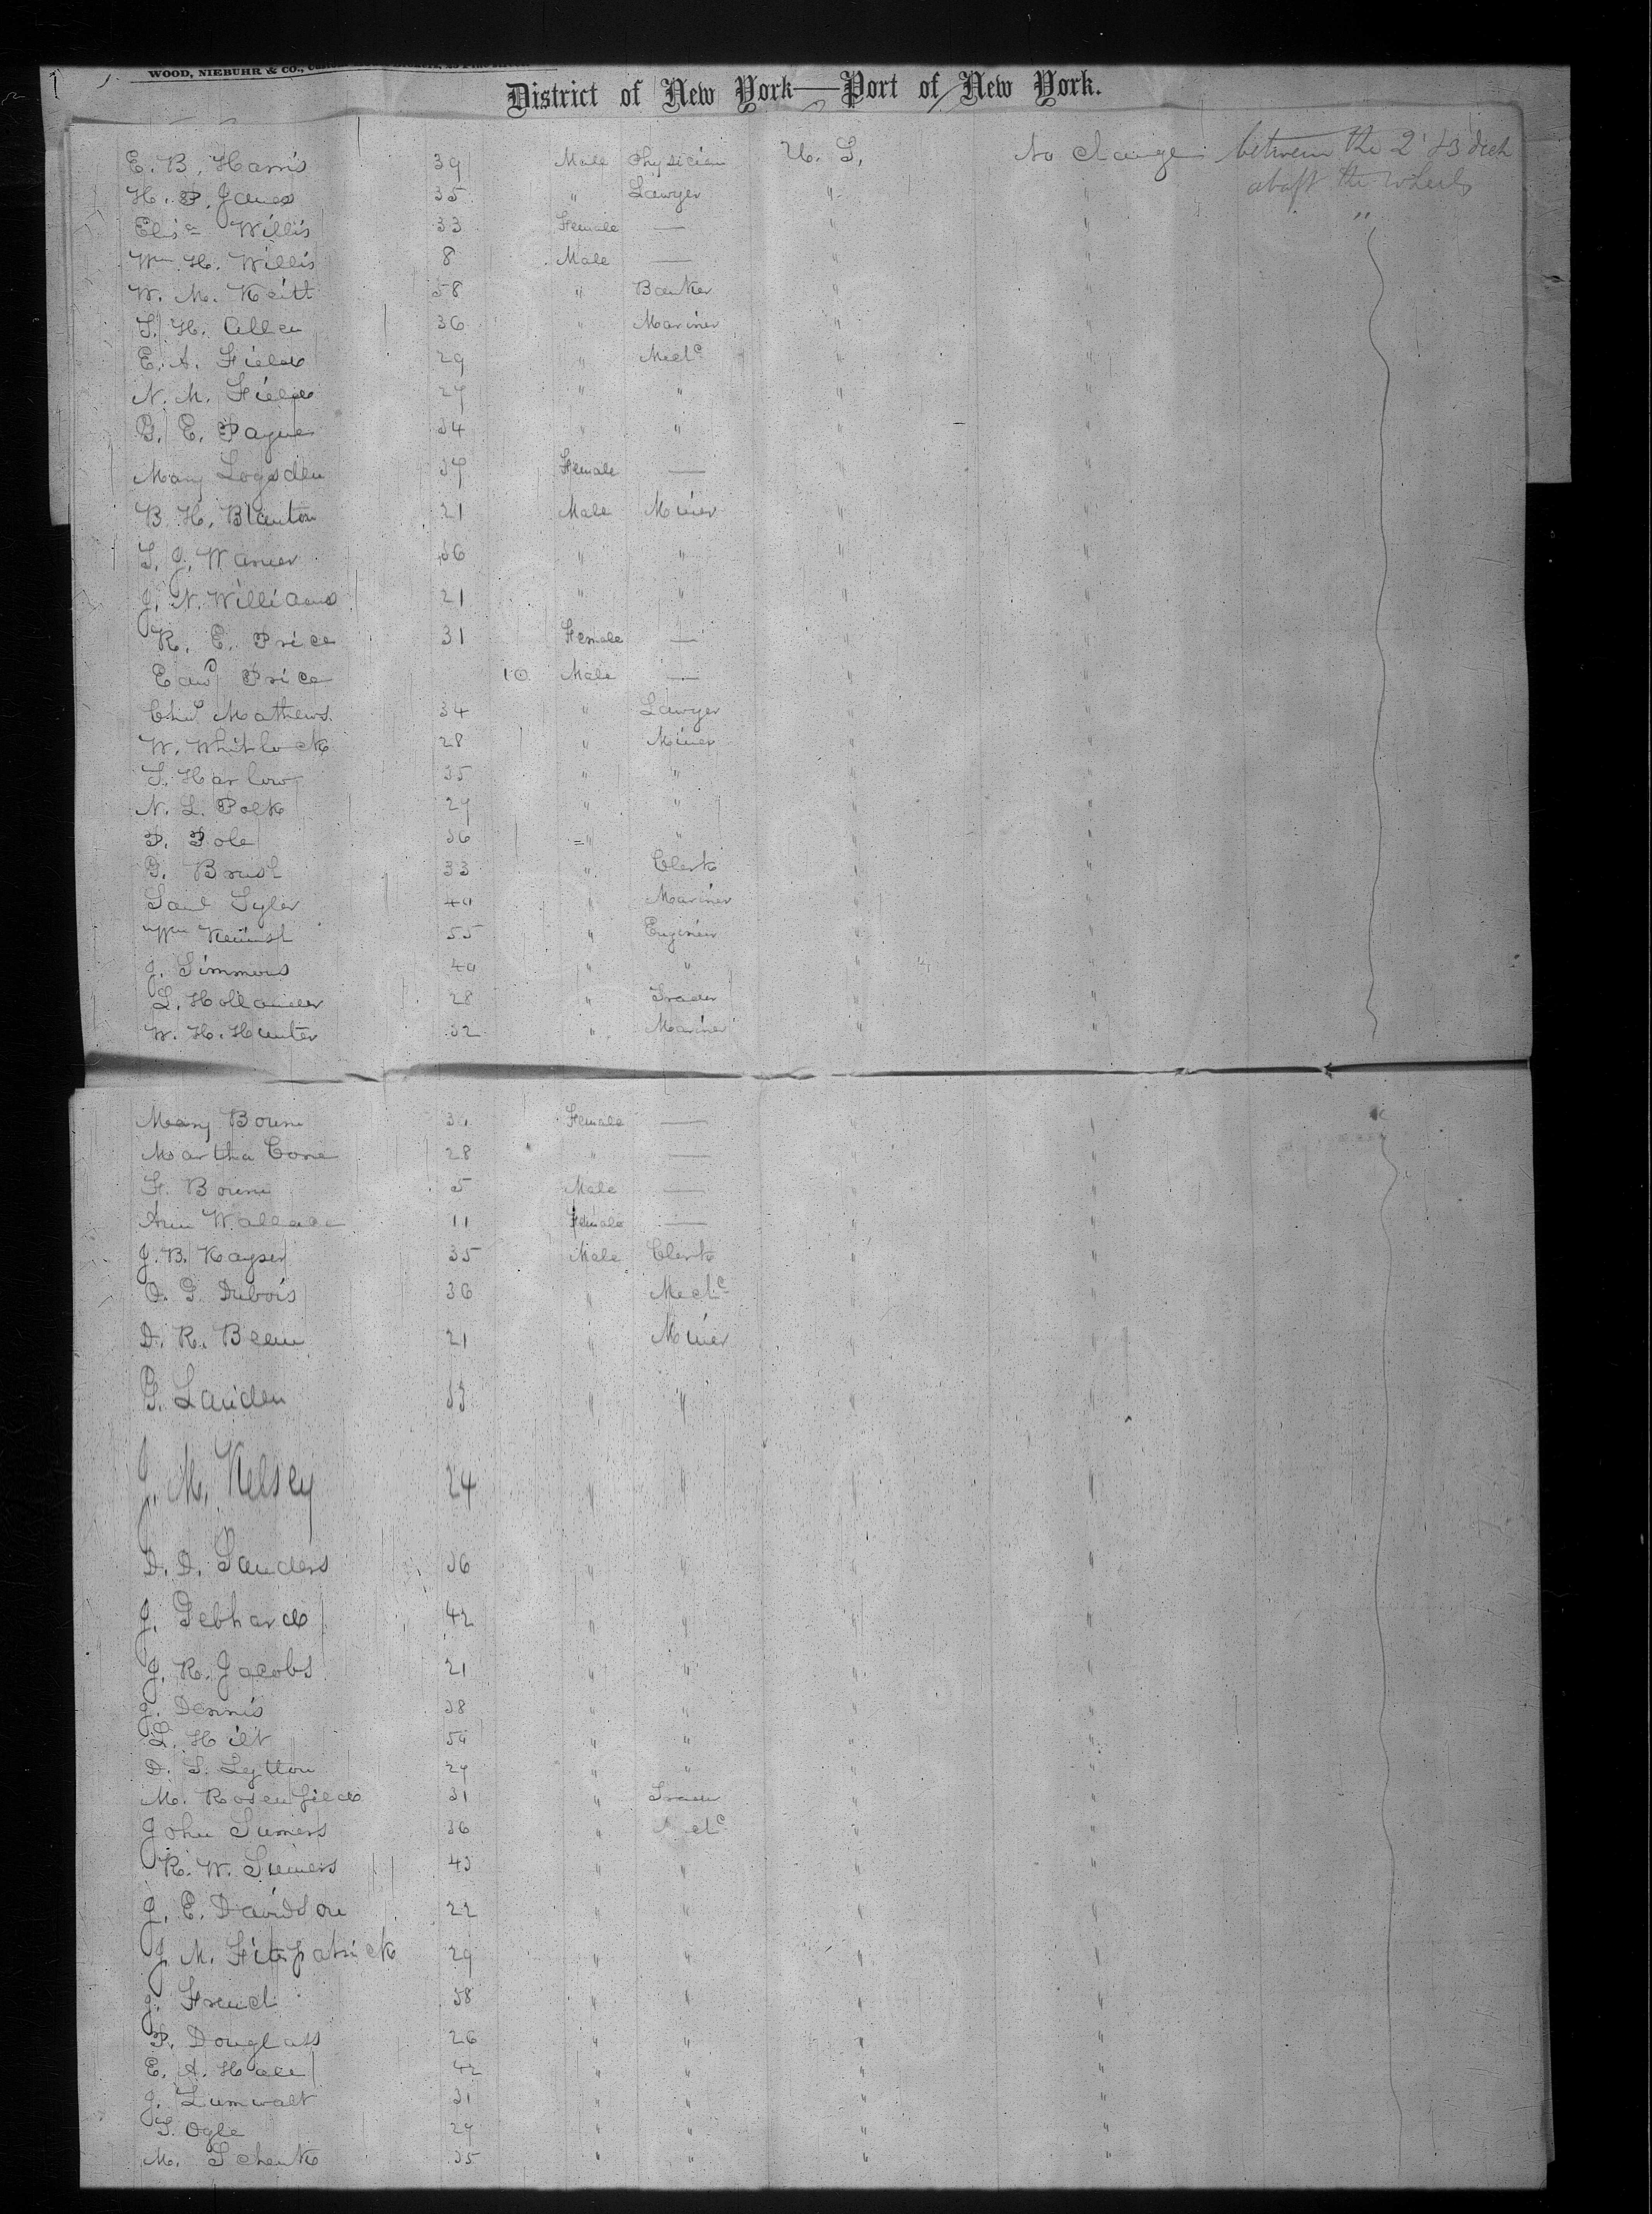 WOOD, NIEBUHR & CO.,
District of New York—Port of New York.
E. B. Harris 39 Male Physician U. S. No change between the 2' & 3 deck
H. P. James 35 " Lawyer " " abaft the wheels
Elisa Willis 33 Female — " " "
Wm. H. Willis 8 Male — " "
W. M. Keitt 58 " Banker " "
S. H. Allen 36 " Mariner " "
E. A. Field 29 " Mechc " "
N. M. Field 27 " " " "
G. E. Payne 34 " " " "
Mary Logsden 37 Female — " "
B. H. Blanton 21 Male Miner " "
S. J. Warner 36 " " " "
J. N. Williams 21 " " " "
R. E. Price 31 Female — " "
Edwd Price 10 Male — " "
Mathews 34 " Lawyer " "
W. Whitlock 28 " Miner " "
S. Harlow 35 " " " "
N. L. Polk 27 " " " "
P. Pole 36 " " " "
G. Brush 33 " Clerk " "
Saml Syler 40 " Mariner " "
Wm 55 " Engineer " "
J. Simmons 40 " " " "
L. Hollander 28 " Trader " "
W. H. Hunter 32 " Mariner " "
Mary Bourn 30 Female — " "
Martha Cone 28 " — " "
F. Bourn 5 Male — " "
Ann Wallace 11 Female — " "
J. B. Kayser 35 Male Clerk " "
O. G. Dubois 36 " Mechc " "
D. R. Beem 21 " Miner " "
G. Landen 33 " " " "
J. M. Kelsey 24 " " " "
D. D. Sanders 36 " " " "
J. Gebhard 42 " " " "
J. R. Jacobs 21 " " " "
J. Dennis 38 " " " "
L. Hilt 50 " " " "
D. S. Lytton 27 " " " "
M. Rosenfield 31 " Trader " "
John Sumers 36 " Mechc " "
R. W. Sumers 43 " " " "
J. E. Davidson 22 " " " "
J. M. Fitzpatrick 29 " " " "
J. French 38 " " " "
P. Douglass 26 " " " "
E. A. Hall 42 " " " "
J. Zumwalt 31 " " " "
S. Ogle 27 " " " "
M. Schenk 35 " " " "